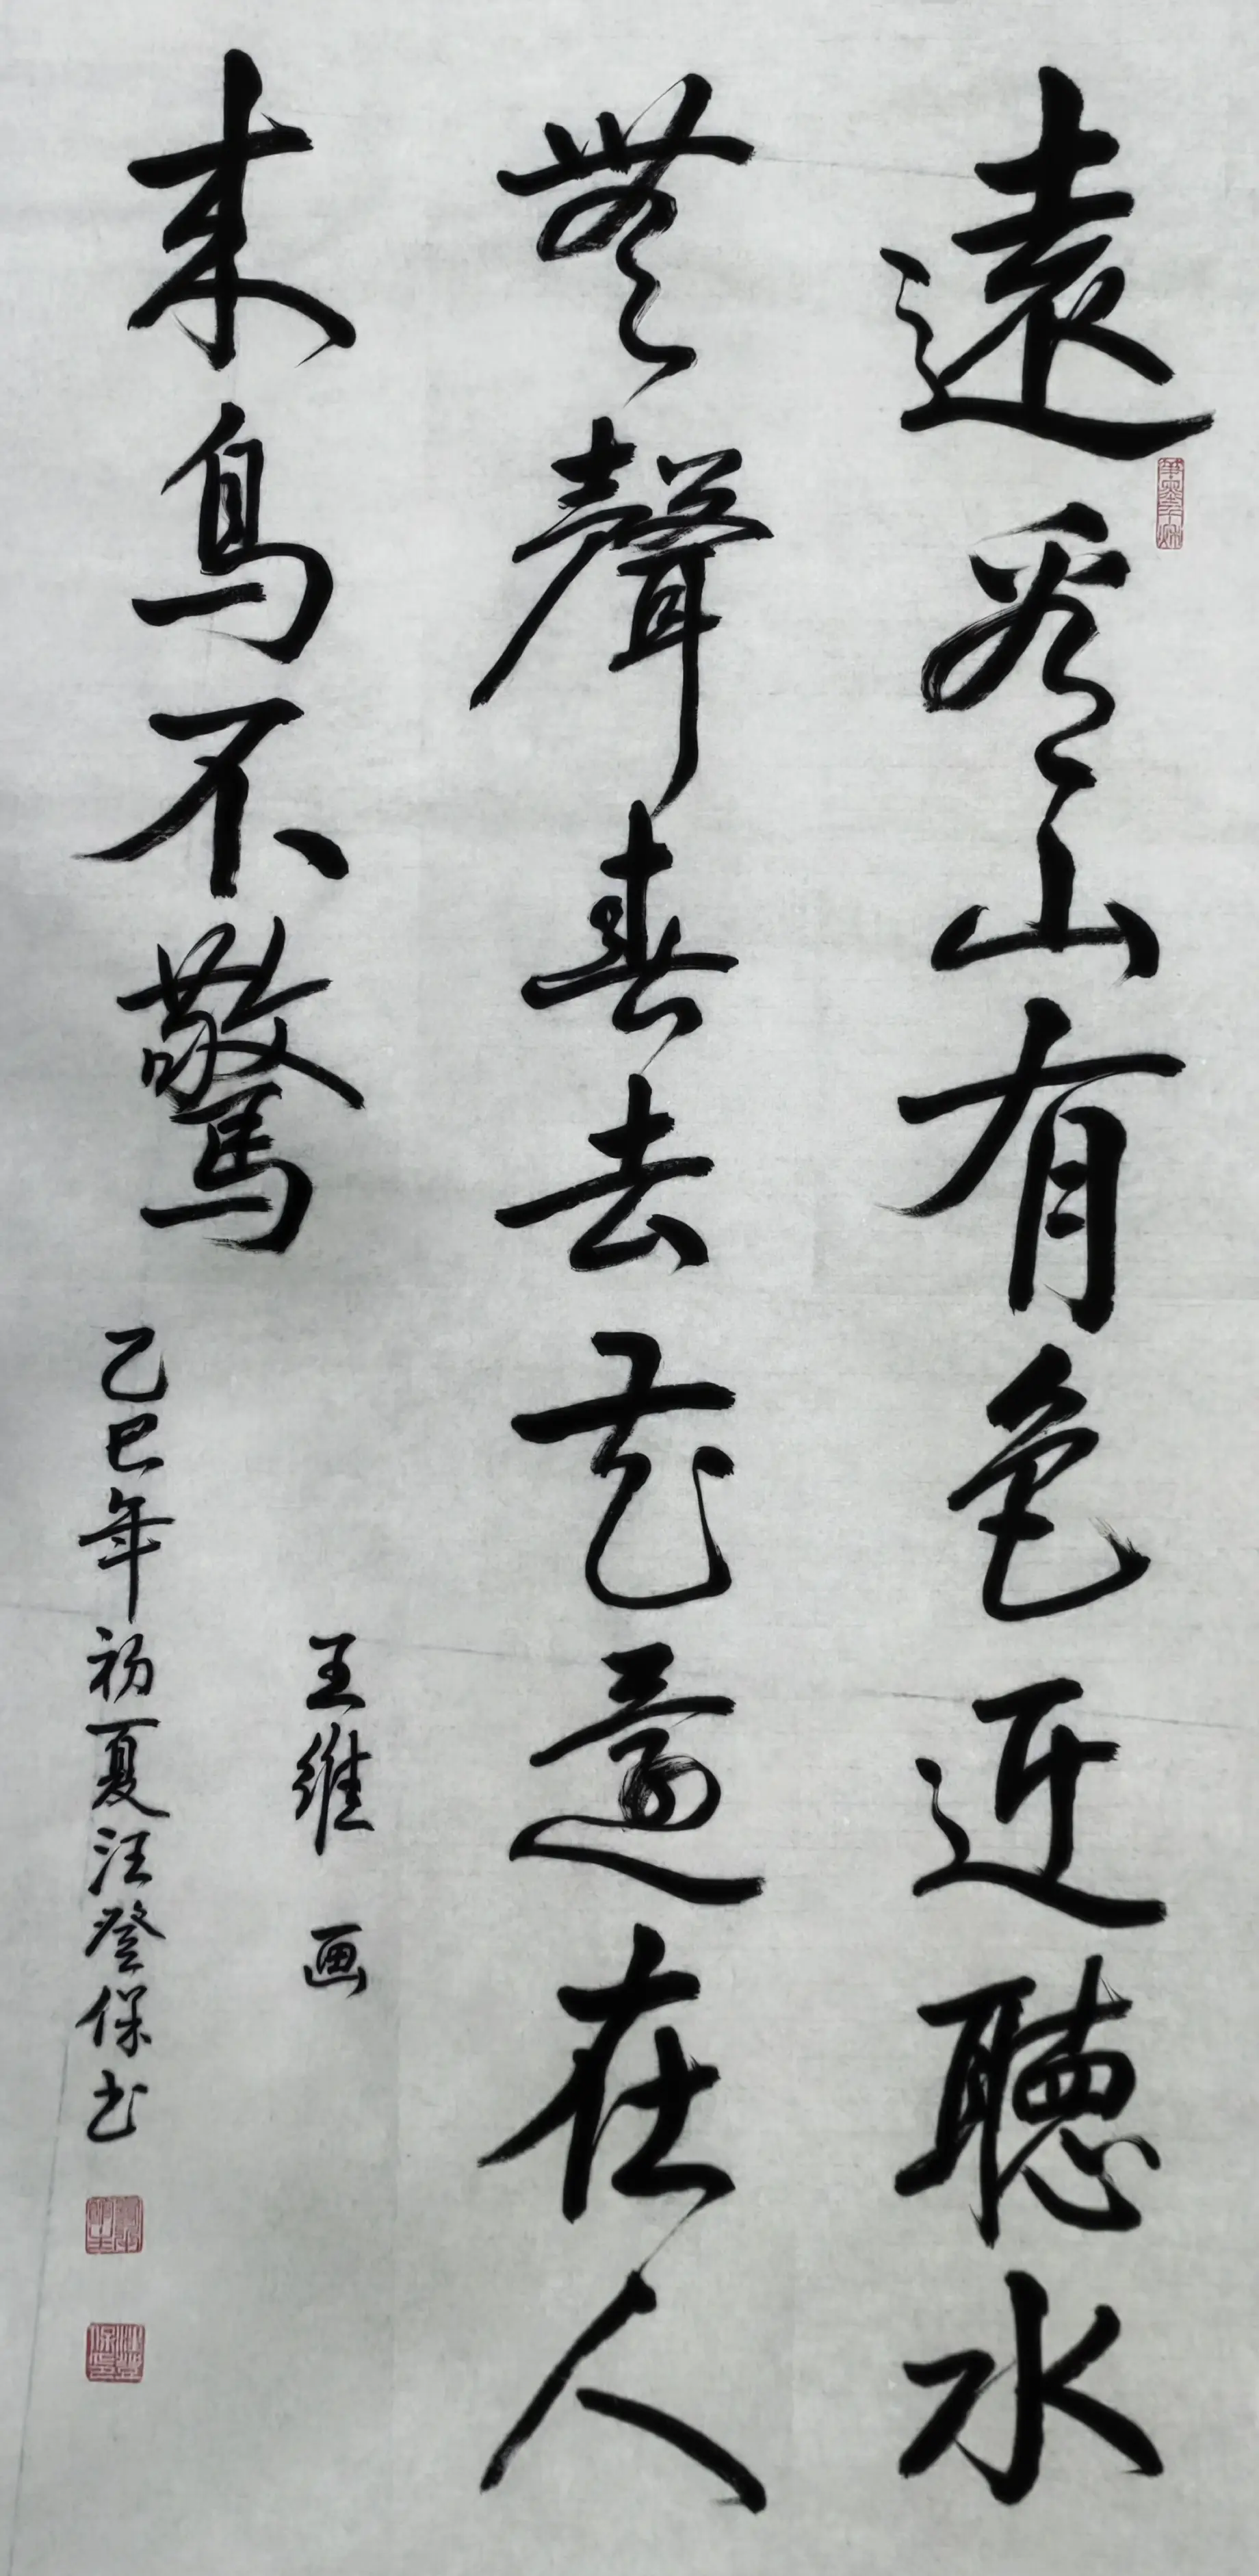 遠看山有色近聽水
無聲春去花還在人
来鳥不驚
王維画
乙巳年初夏汪登保书